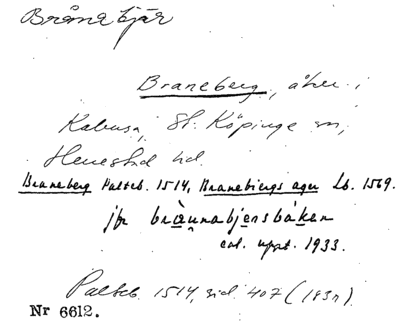 Bråna bjär
Braneberg, åker i
Kabusa, St. Köpinge sn,
Herrestad hd.
Braneberg Palteb. 1514, Branebiergs ager Lb. 1569.
jfr bràunabjersbáken
enl. uppt. 1933.
Palteb. 1514, sid. 407 (183r).
Nr 6612.